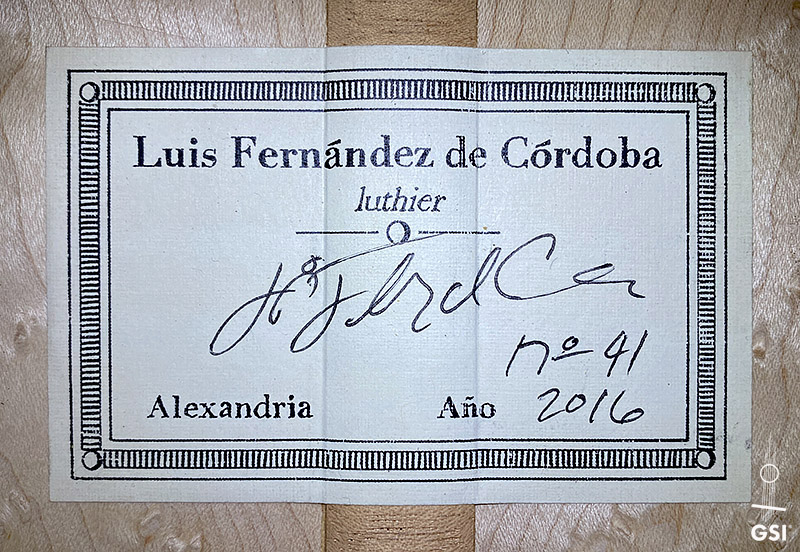 Luis Fernández de Córdoba
luthier
nº 41
Alexandria Año 2016
GSI